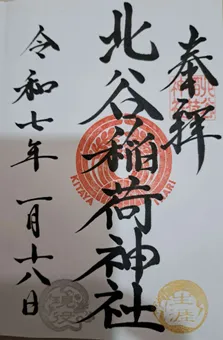 奉拝
北谷稲荷神社
令和七年一月十八日
KITAYA